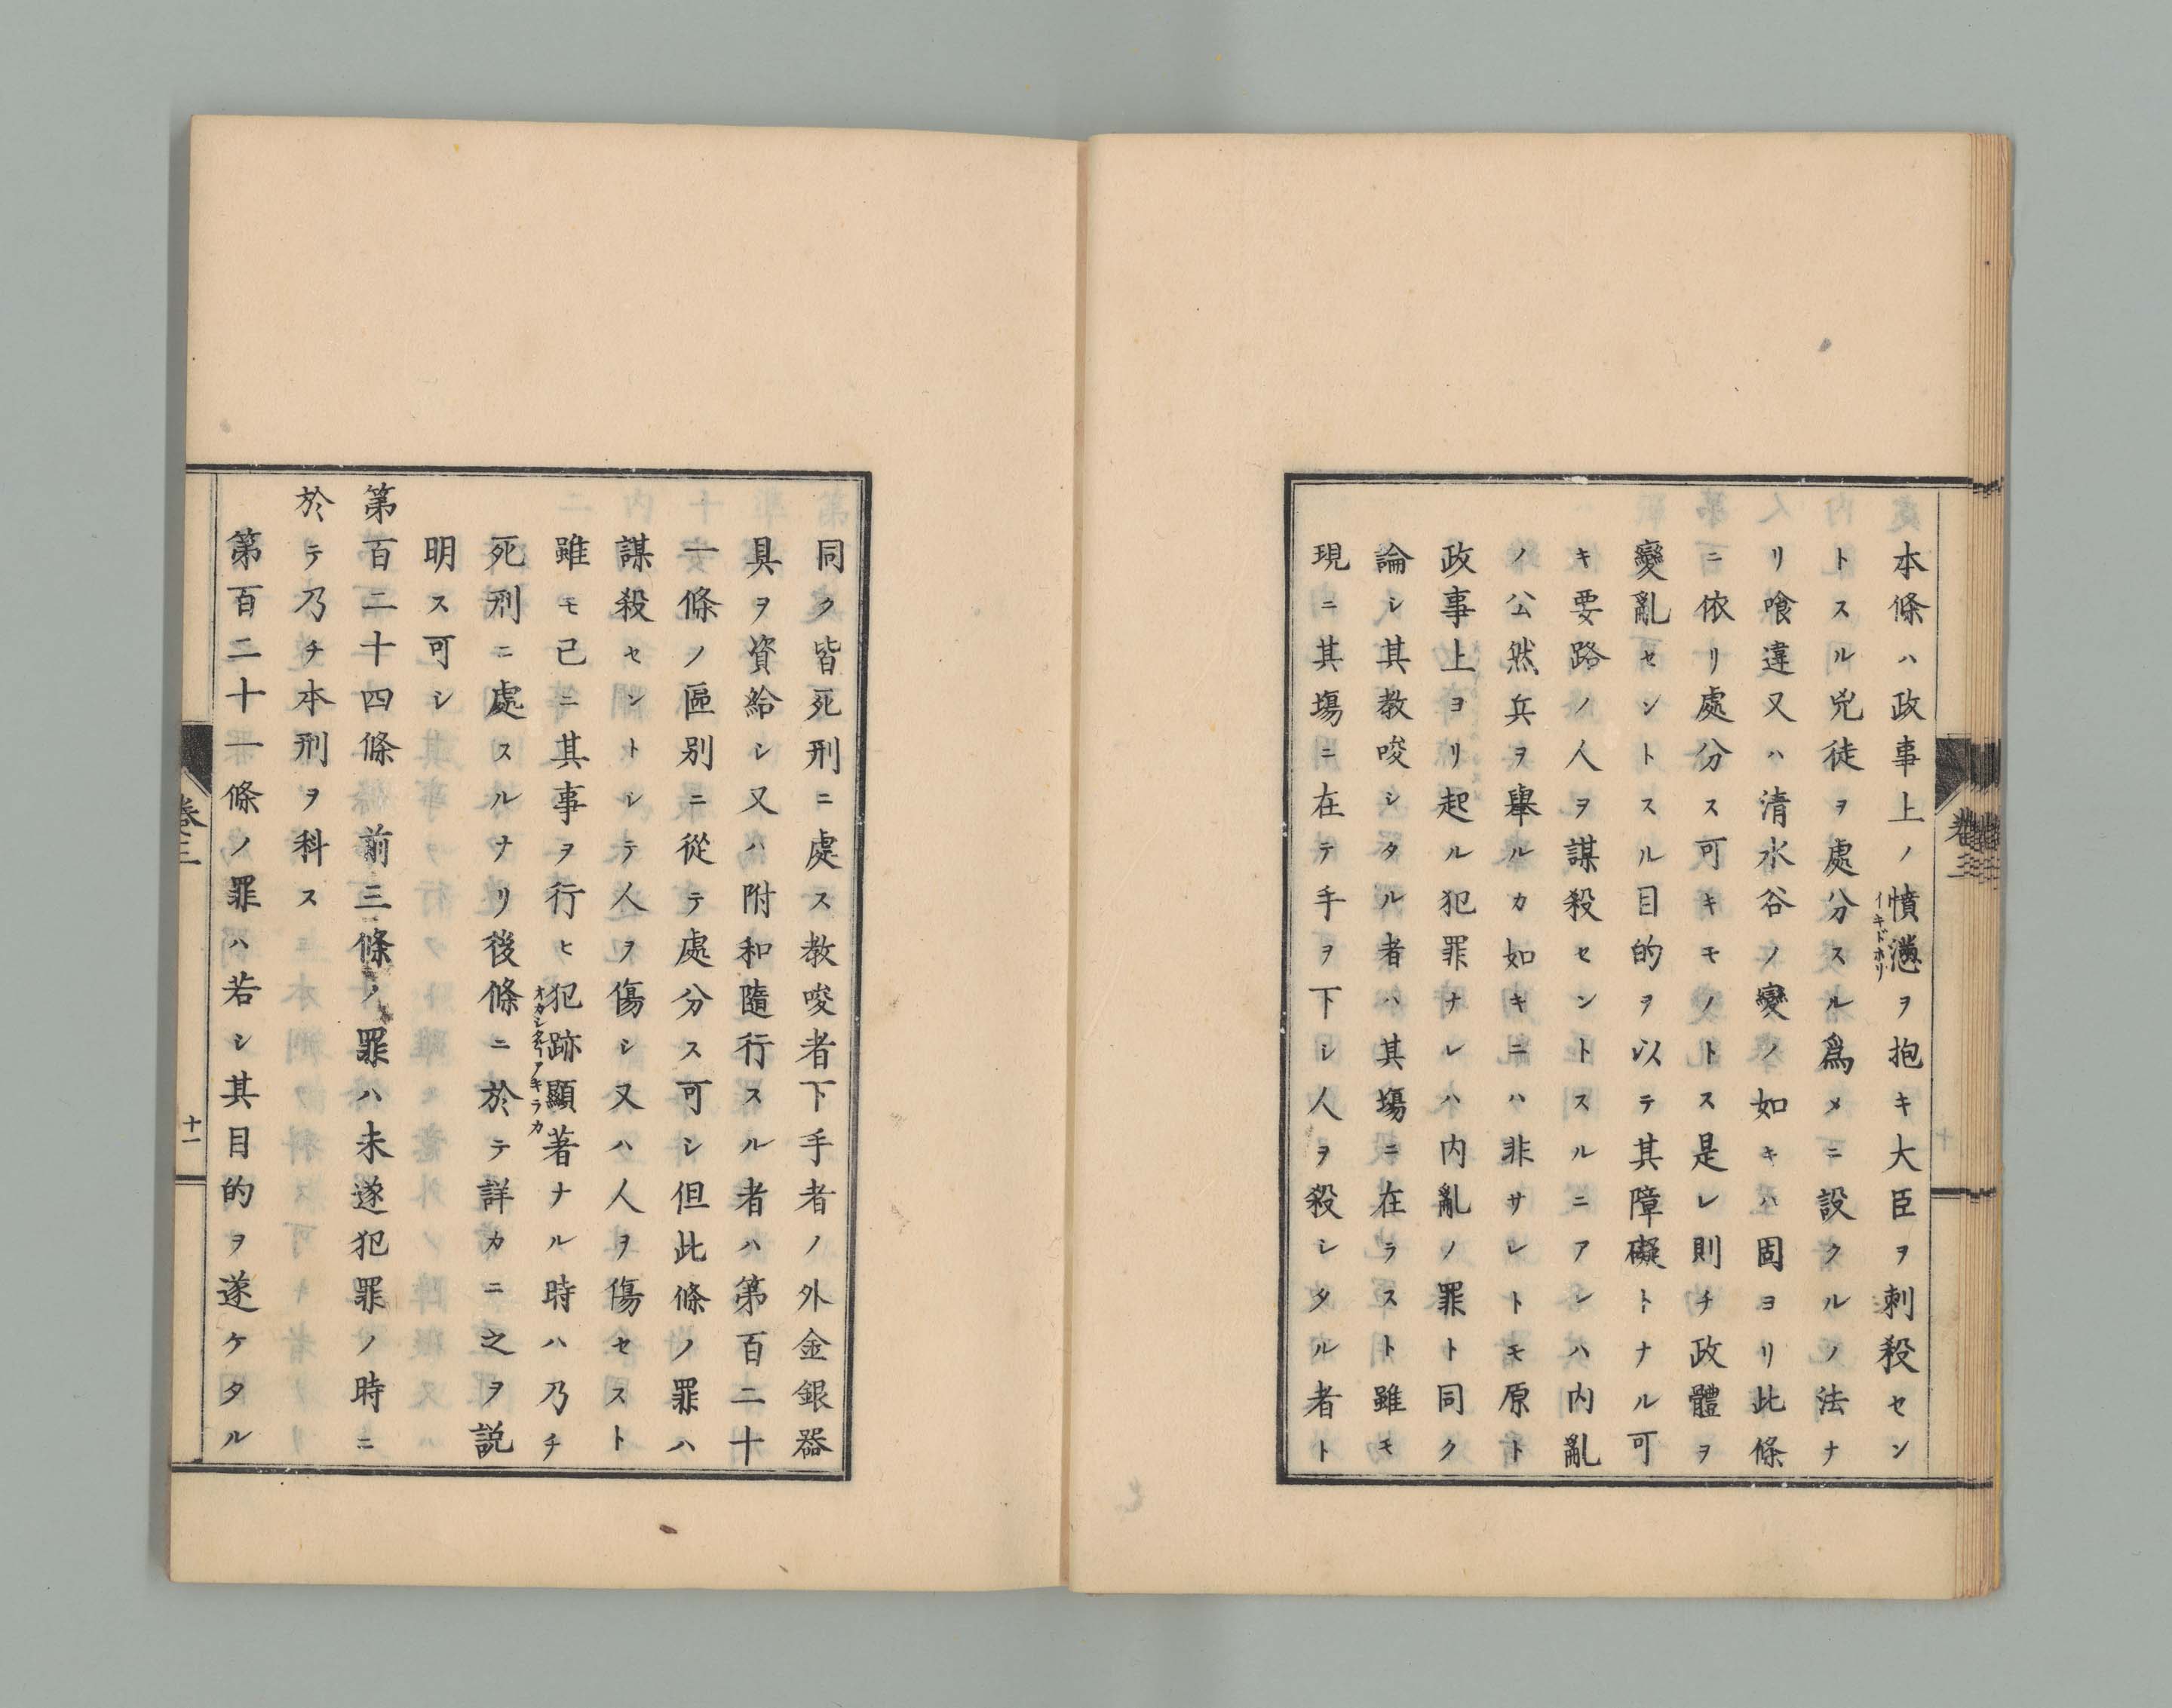 本條ハ政事上ノ憤懣ヲ抱キ大臣ヲ刺殺セン
イキドホリ
トスル兇徒ヲ處分スル爲メニ設クルノ法ナ
リ喰違又ハ清水谷ノ變ノ如キハ固ヨリ此條
ニ依リ處分ス可キモノトス是レ則チ政體ヲ
變亂セシトスル目的ヲ以テ其障礙トナル可
キ要路ノ人ヲ謀殺セントスルニアシハ內亂
ノ公然兵ヲ擧ルカ如キニハ非サレトモ原ト
政事上ヨリ起ル犯罪ナレハ內亂ノ罪ト同ク
論シ其教唆シタル者ハ其塲ニ在ラスト雖モ
現ニ其塲ニ在テ手ヲ下シ人ヲ殺シタル者ト
卷三
同ク皆死刑ニ處ス教唆者下手者ノ外金銀器
具ヲ資給シ又ハ附和隨行スル者ハ第百二十
一條ノ區別ニ從テ處分ス可シ但此條ノ罪ハ
謀殺セントシテ人ヲ傷シ又ハ人ヲ傷セスト
雖モ已ニ其事ヲ行ヒ犯跡顯著ナル時ハ乃チ
オカシタアキラカ
死刑ニ處スルナリ後條ニ於テ詳カニ之ヲ説
明ス可シ
第百二十四條 前三條ノ罪ハ未遂犯罪ノ時ニ
於テ乃チ本刑ヲ科ス
第百二十一條ノ罪ハ若シ其目的ヲ遂ケタル
卷三
十一